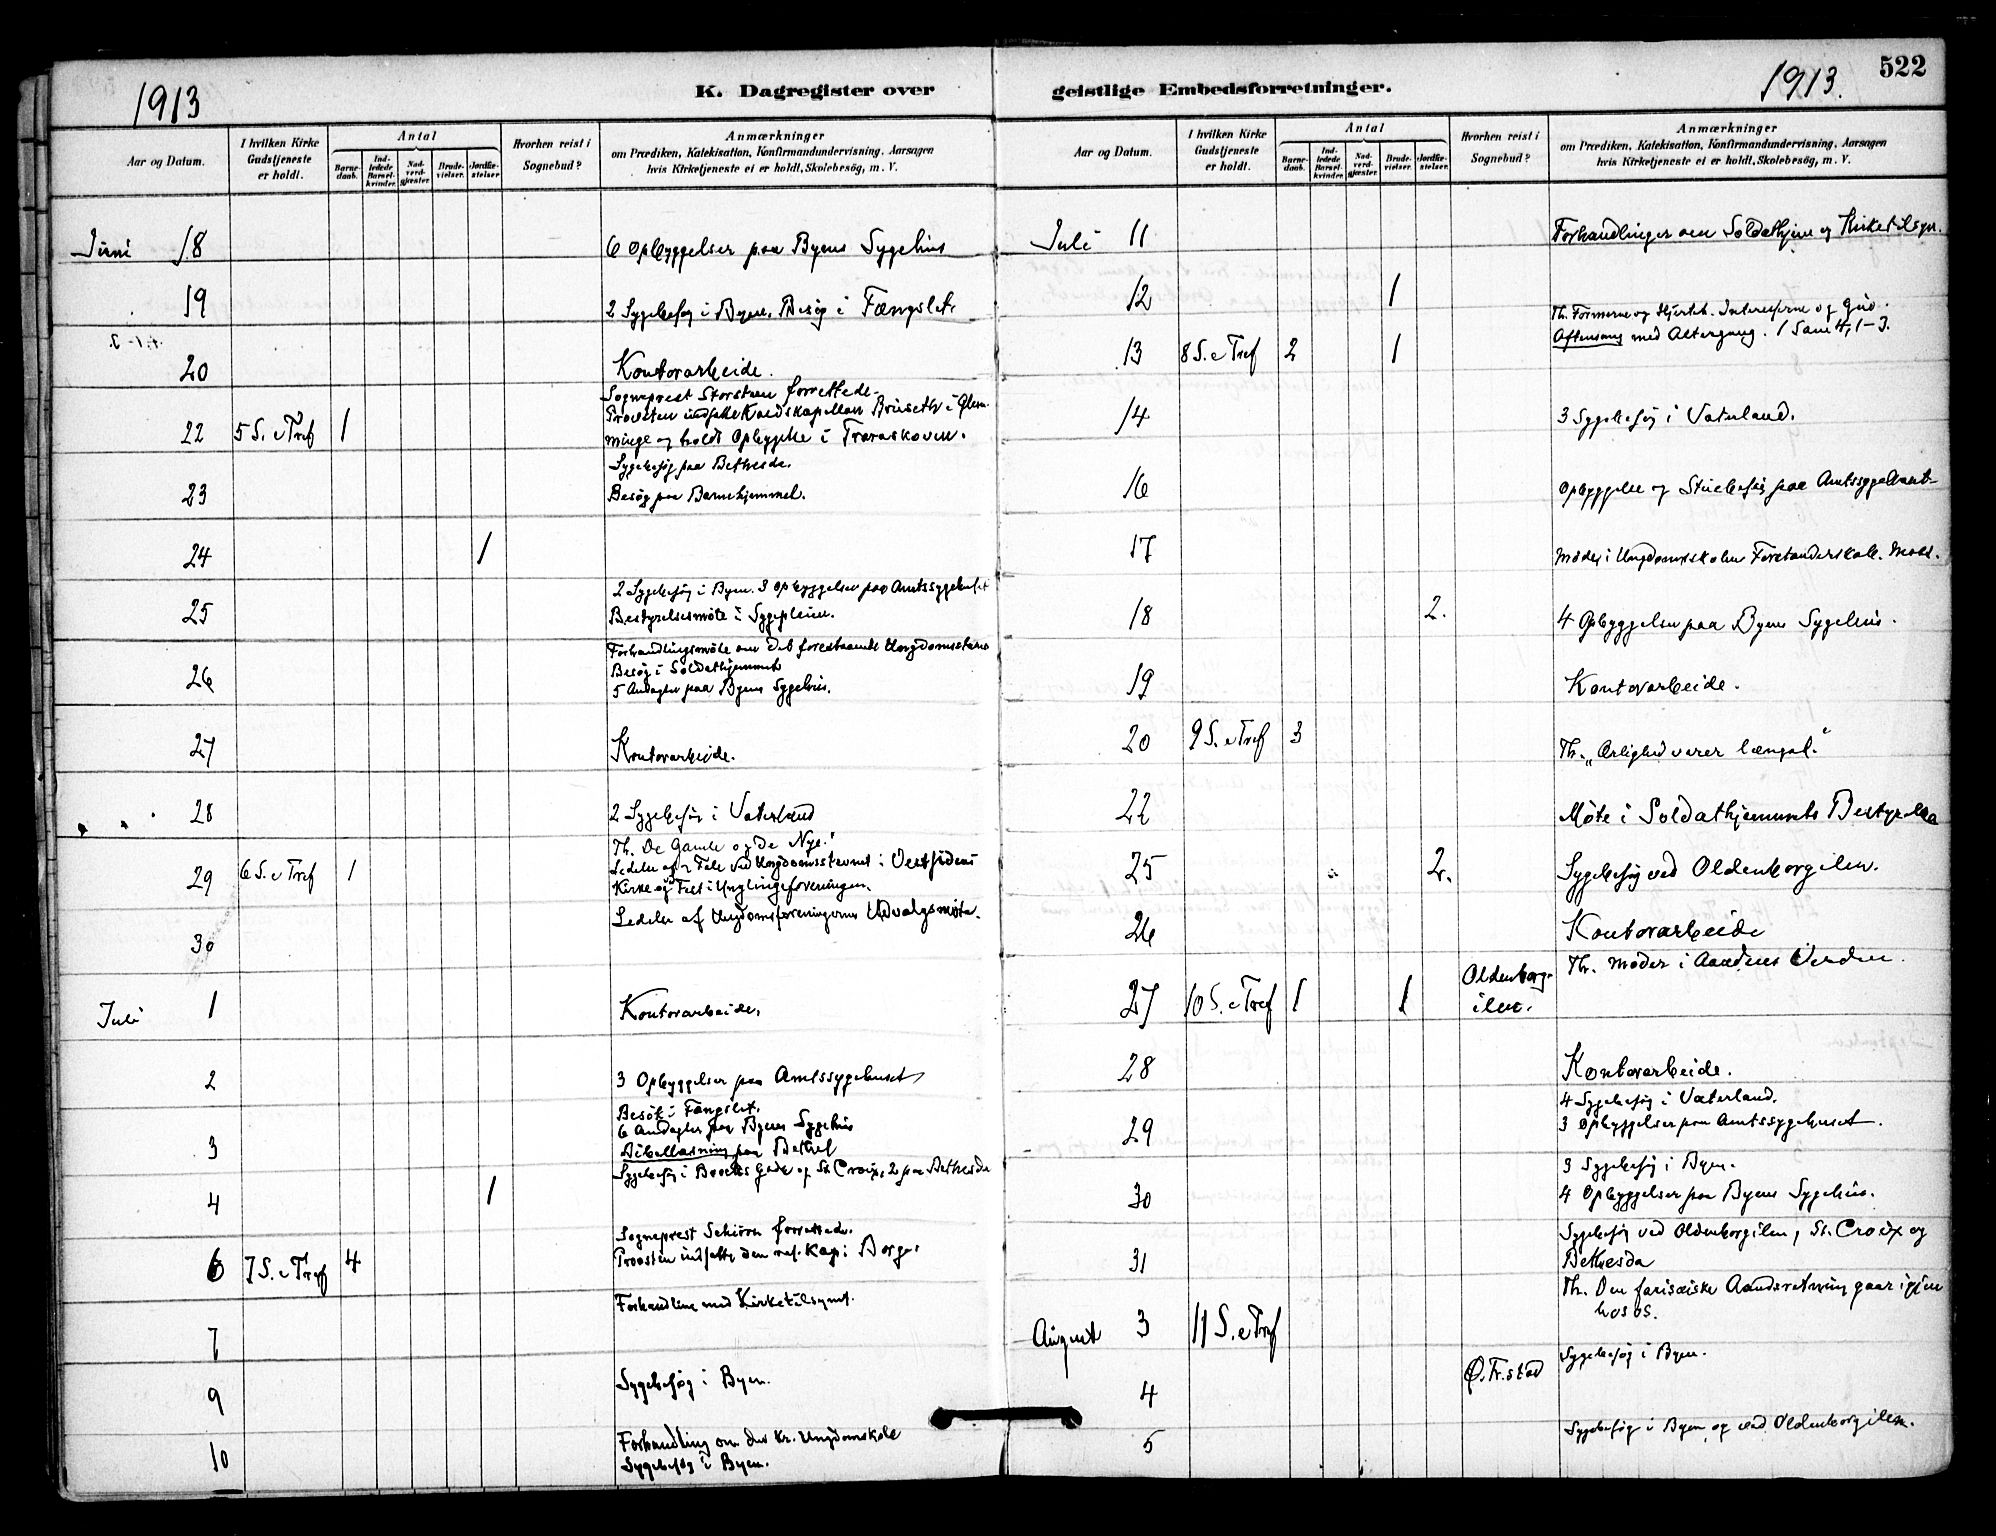 1913
K. Dagregister over
Aar og Datum.
I hvilken Kirke Gudstjeneste er holdt.
Antal
Barne-daab.
Ind-ledede Barsel-kvinder.
Nad-verd-gjæster.
Brude-vielser.
Jordfæ-stelser.
Hvorhen reist i Sognebud?
Anmærkninger
om Prædiken, Katekisation, Konfirmandundervisning, Aarsagen
hvis Kirketjeneste ei er holdt, Skolebesög, m. V.
Juni 18 6 Opbyggelser paa Byens Sygehus
19 2 Sygebesøg i Byen. Besøg i Fængslet.
20 Kontorarbeide.
Sogneprest Storstren forrettede.
Provsten indsatte Kaldskapellan i Glem-
22 5 S. e Tref 1 minge og holdt Opbyggelse i Traraskoven.
Sygebesøg paa Bethesda.
23 Besøg paa Barnehjemmet.
24 1
2 Sygebesøg i Byen. 3 Opbyggelser paa Amtssygehuset
25 Bestyrelsesmöte i Sygepleien.
Forhandlingsmöte om det forestaaende Ungdomsstevne
26 Besög i Soldathjemmet
5 Andagter paa Byens Sygehus.
27 Kontorarbeide.
28 2 Sygebesøg i Vaterland
Th. De Gamle og de Nye.
29 6 S. e Tref 1 Leder af og Tale ved Ungdomsstevnet i Vestsidens
Kirke og Fest i Ynglingeforeningen.
30 Leder af Ungdomsforeningernes Udvalgsmöte.
Juli 1 Kontorarbeide.
2 3 Opbyggelser paa Amtssygehuset
Besök i Fængslet.
3 6 Andagter paa Byens Sygehus
Bibellæsning paa Bethel
4 1 Sygebesøg i Brochs Gade og St. Croix, 2 paa Bethesda
Sogneprest Schiörn forrettede.
6 7 S. e Tref 4 Provsten indsatte den res. Kap. i Borge.
7 Forhandling med Kirketilsynet.
9 Sygebesøg i Byen.
Forhandling om den kr. Ungdomskole
10 Sygebesøg i Byen.
geistlige Embedsforretninger.
1913.
522
Aar og Datum.
I hvilken Kirke Gudstjeneste er holdt.
Antal
Barne-daab.
Ind-ledede Barsel-kvinder.
Nad-verd-gjæster.
Brude-vielser.
Jordfæ-stelser.
Hvorhen reist i Sognebud?
Anmærkninger
om Prædiken, Katekisation, Konfirmandundervisning, Aarsagen
hvis Kirketjeneste ei er holdt, Skolebesög, m. V.
Juli 11 Forhandlinger om Soldathjem og Kirketilsyn.
12 1
Th. Formerne og Hjertet. Interesserne og Gud.
13 8 S. e Tref 2 1 Aftensang med Altergang. 1 Sam 4, 1-3.
14 3 Sygebesøg i Vaterland.
16 Opbyggelse og Stuebesøg paa Amtssygehuset.
17 Möder i Ungdomsskolen Forstanderskab.
18 2. 4 Opbyggelser paa Byens Sygehus.
19 Kontorarbeide.
20 9 S. e Tref 3 Th. „Ærlighed varer længst."
22 Möte i Soldathjemmets Bestyrelse
25 2. Sygebesøg ved Oldenborgilen.
26 Kontorarbeide
Th. Möder i Aandens Verden.
27 10 S. e Tref 1 1 Oldenborg-
ilen.
28 Kontorarbeide.
4 Sygebesøg i Vaterland.
29 3 Opbyggelser paa Amtssygehuset.
3 Sygebesøg i Byen.
30 4 Opbyggelser paa Byens Sygehus.
Sygebesøg ved Oldenborgilen, St. Croix og
31 Bethesda
Th. Den farisæiske Aandsretning gaar igjen
August 3 11 S. e Tref hos os.
4 Ø. Fr.stad Sygebesøg i Byen.
5 Sygebesøg i Byen og ved Oldenborgilen.